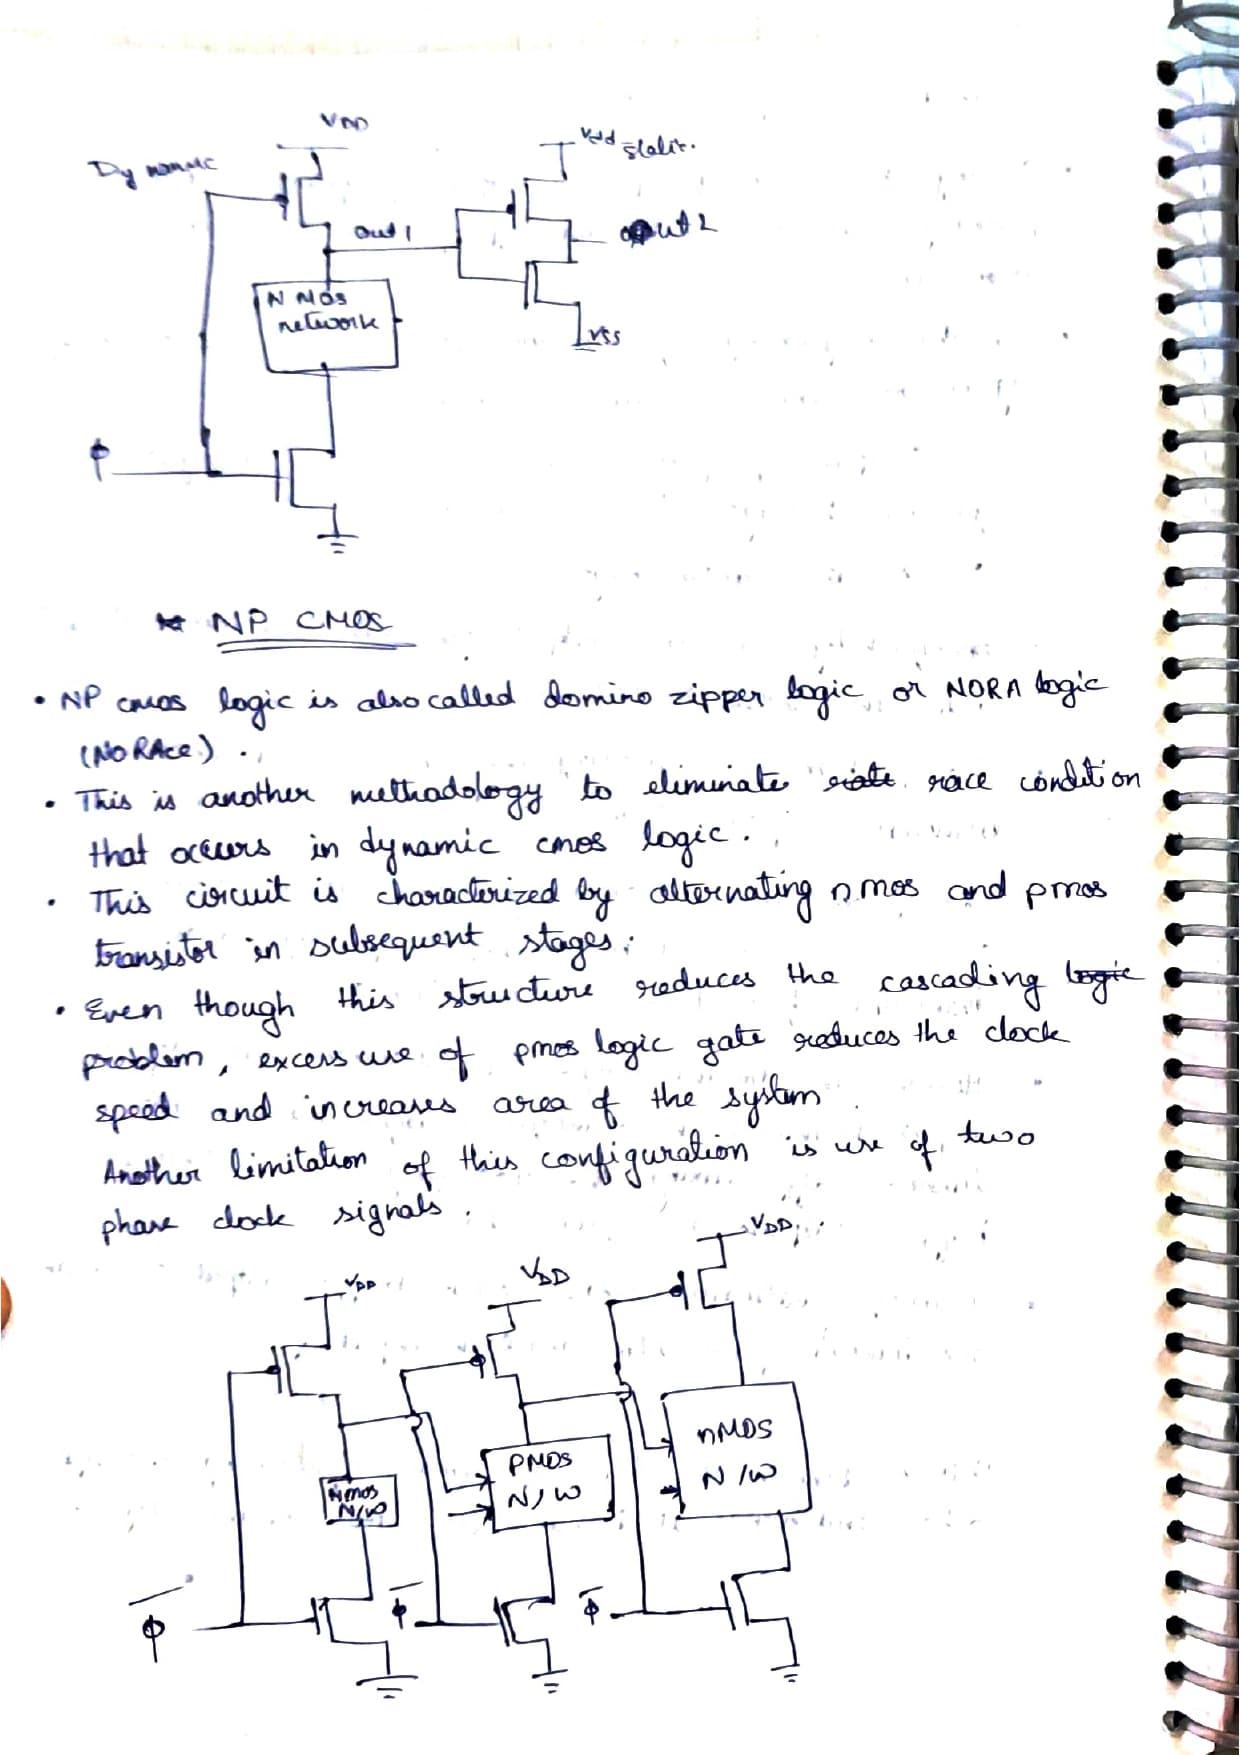 VDD
Dynamic
Vdd static.
out 1
out 2
N MOS
network
VSS
ϕ
* NP CMOS
• NP cmos logic is also called domino zipper logic or NORA logic
(NO RAce) .
• This is another methadology to eliminate race condition
that occurs in dynamic cmos logic .
• This circuit is characterized by alternating n mos and pmos
transistor in subsequent stages .
• Even though this structure reduces the cascading logic
problem , excess use of pmos logic gate reduces the clock
speed and increases area of the system
Another limitation of this configuration is use of two
phase clock signals .
VDD
VDD
VDD
Nmos
N/W
PMOS
N/W
nMOS
N/W
ϕ̅
ϕ̅
ϕ̅